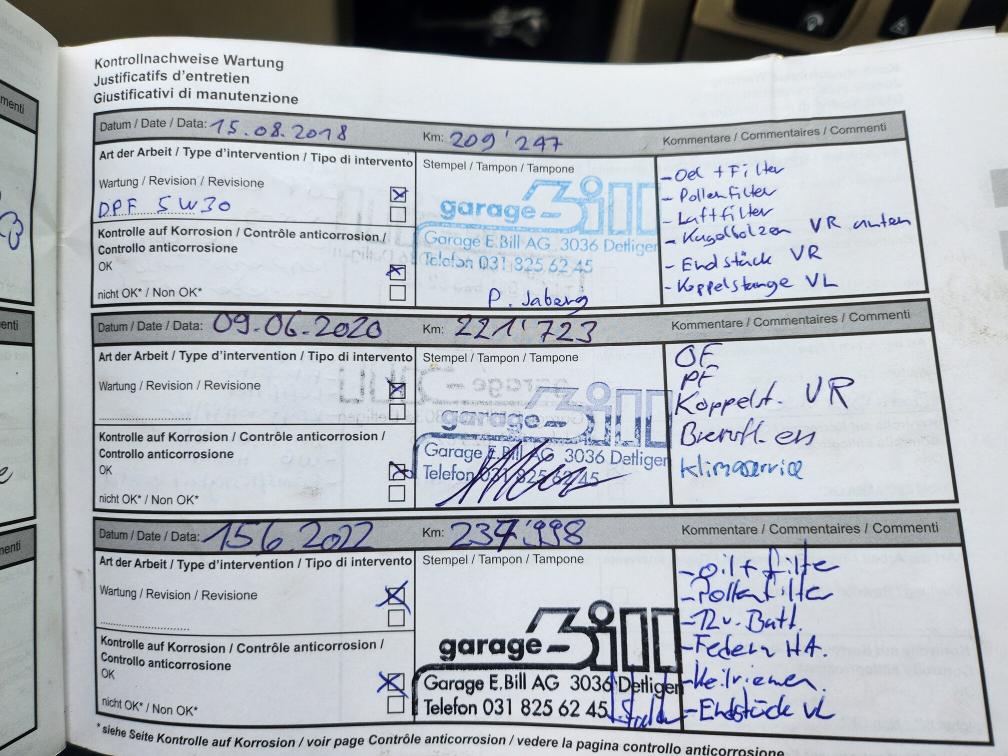 Kontrollnachweise Wartung
Justificatifs d'entretien
Giustificativi di manutenzione
Datum / Date / Data: 15.08.2018 Km: 209'247 Kommentare / Commentaires / Commenti
Art der Arbeit / Type d'intervention / Tipo di intervento
Stempel / Tampon / Tampone
Wartung / Revision / Revisione
DPF 5W30
Kontrolle auf Korrosion / Contrôle anticorrosion /
Controllo anticorrosione
OK
nicht OK* / Non OK*
garage Bill
Garage E.Bill AG 3036 Detligen
Telefon 031 825 62 45
P. Jaberg
- Oel + Filter
- Pollenfilter
- Luftfilter
- Kugelbolzen VR unten
- Endstück VR
- Koppelstange VL
Datum / Date / Data: 09.06.2020 Km: 221'723 Kommentare / Commentaires / Commenti
Art der Arbeit / Type d'intervention / Tipo di intervento
Stempel / Tampon / Tampone
Wartung / Revision / Revisione
Kontrolle auf Korrosion / Contrôle anticorrosion /
Controllo anticorrosione
OK
nicht OK* / Non OK*
garage Bill
Garage E.Bill AG 3036 Detligen
Telefon 031 825 62 45
OF
PF
Koppelst. VR
Bremfl. ers
Klimaservice
Datum / Date / Data: 15.6.2022 Km: 237'998 Kommentare / Commentaires / Commenti
Art der Arbeit / Type d'intervention / Tipo di intervento
Stempel / Tampon / Tampone
Wartung / Revision / Revisione
Kontrolle auf Korrosion / Contrôle anticorrosion /
Controllo anticorrosione
OK
nicht OK* / Non OK*
garage Bill
Garage E.Bill AG 3036 Detligen
Telefon 031 825 62 45
- Oil + filter
- Pollenfilter
- 12v. Batt.
- Federn HA.
- Keilriemen.
- Endstück VL
* siehe Seite Kontrolle auf Korrosion / voir page Contrôle anticorrosion / vedere la pagina controllo anticorrosione